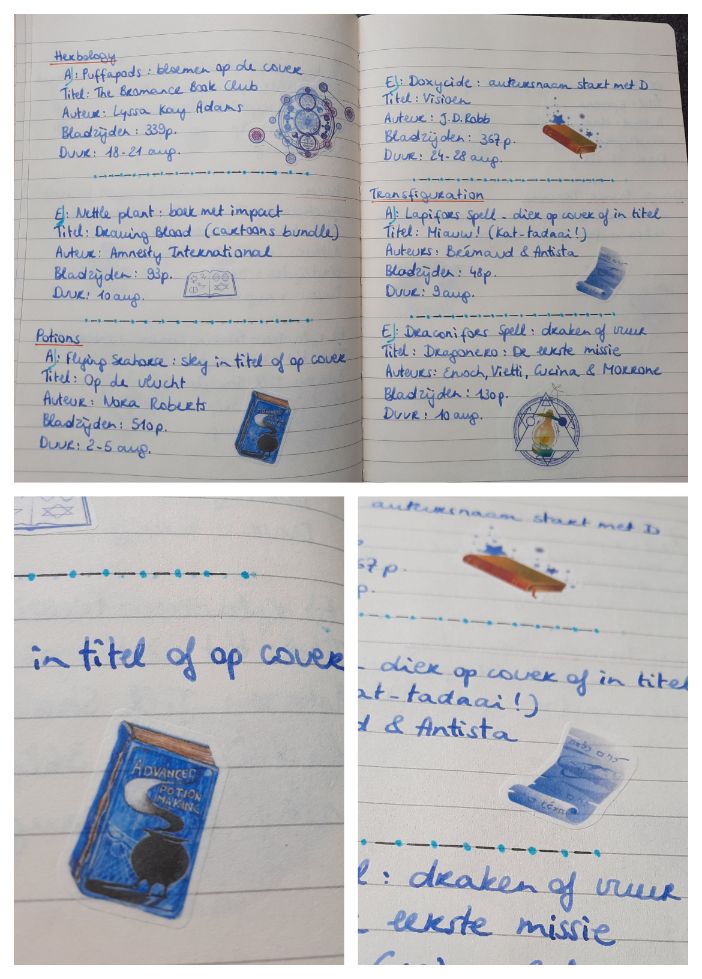 Herbology
A): Puffapods : bloemen op de cover
Titel: The Bromance Book Club
Auteur: Lyssa Kay Adams
Bladzijden: 339p.
Duur: 18-21 aug.
E): Nettle plant : boek met impact
Titel: Drawing Blood (cartoons bundle)
Auteur: Amnesty International
Bladzijden: 93p.
Duur: 10 aug.
Potions
A): Flying Seahorse : sky in titel of op cover
Titel: Op de vlucht
Auteur: Nora Roberts
Bladzijden: 510p.
Duur: 2-5 aug.
ADVANCED
POTION
MAKING
E): Doxycide : auteursnaam start met D
Titel: Visioen
Auteur: J.D. Robb
Bladzijden: 367p.
Duur: 24-28 aug.
Transfiguration
A): Lapifors Spell - dier op cover of in titel
Titel: Miauw! (Kat-tadaai!)
Auteurs: Brémaud & Antista
Bladzijden: 48p.
Duur: 9 aug.
E): Draconifors Spell : draken of vuur
Titel: Dragonero: De eerste missie
Auteurs: Enoch, Vietti, Cucina & Morrone
Bladzijden: 130p.
Duur: 10 aug.
in titel of op cover
ADVANCED
POTION
MAKING
auteursnaam start met D
67 p.
p.
- dier op cover of in titel
at-tadaai!)
d & Antista
l : draken of vuur
eerste missie